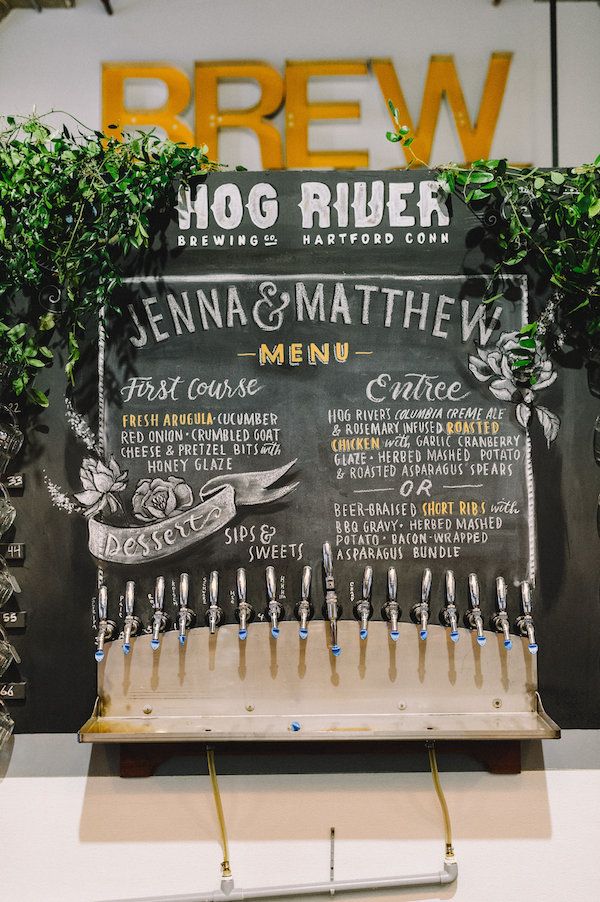 BREW
HOG RIVER
BREWING CO. HARTFORD CONN
JENNA & MATTHEW
MENU
First Course
FRESH ARUGULA • CUCUMBER
RED ONION • CRUMBLED GOAT
CHEESE & PRETZEL BITS with
HONEY GLAZE
Dessert
SIPS &
SWEETS
Entree
HOG RIVER'S COLUMBIA CREME ALE
& ROSEMARY INFUSED ROASTED
CHICKEN with GARLIC CRANBERRY
GLAZE • HERBED MASHED POTATO
& ROASTED ASPARAGUS SPEARS
OR
BEER-BRAISED SHORT RIBS with
BBQ GRAVY • HERBED MASHED
POTATO • BACON-WRAPPED
ASPARAGUS BUNDLE
33
44
55
66